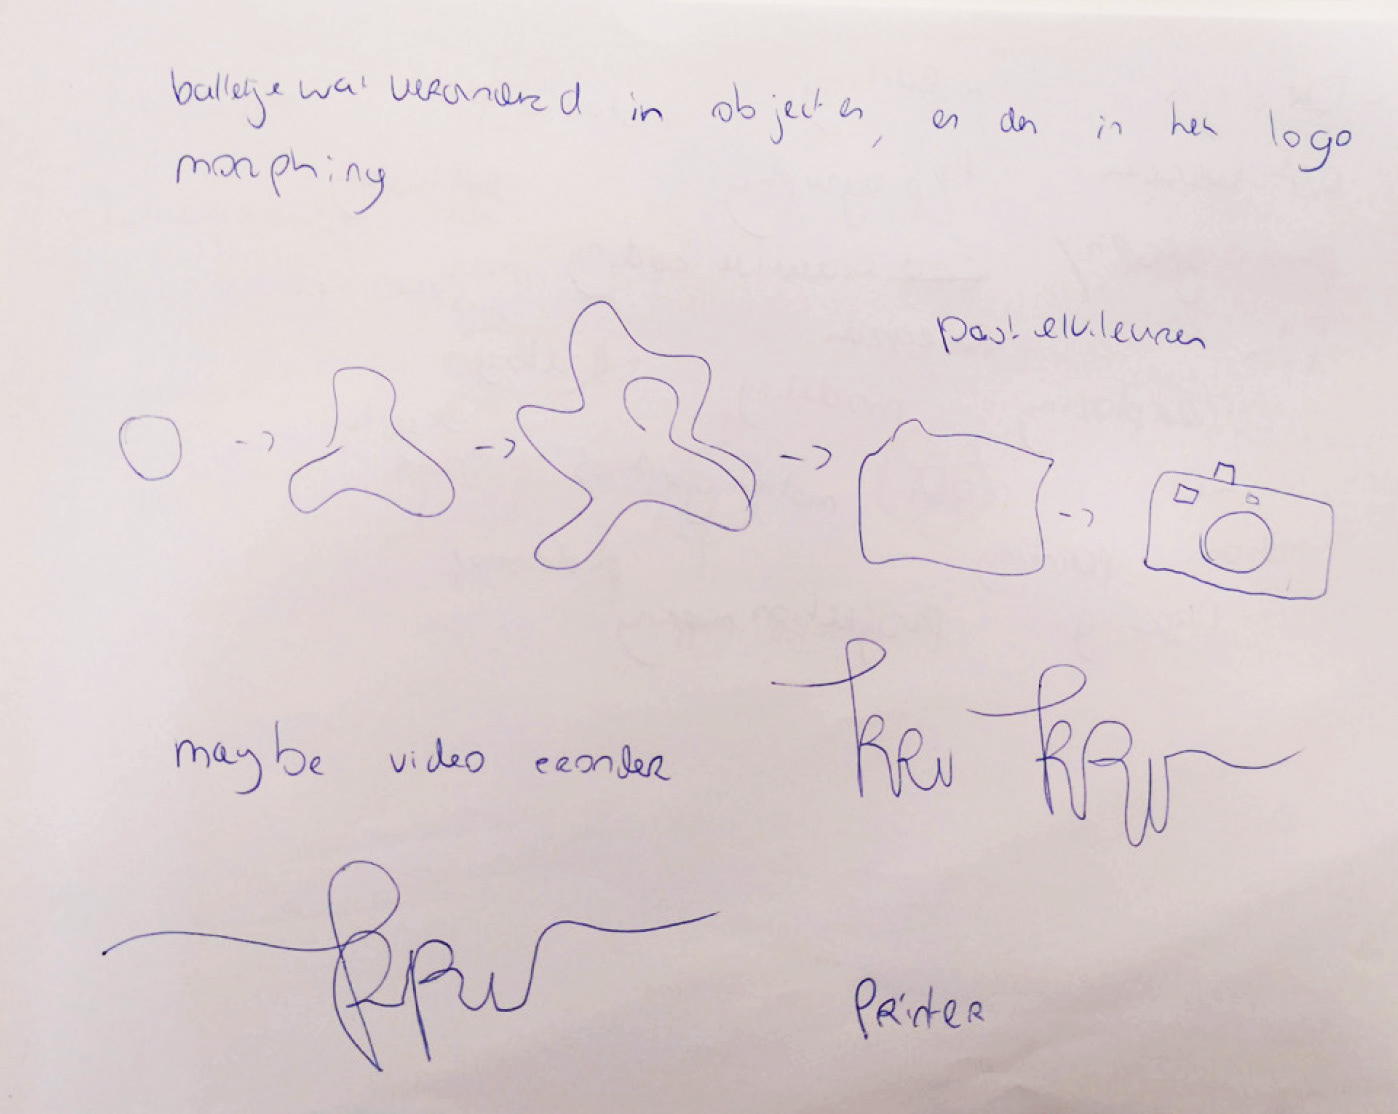 balletje wat veranderd in objecten, en dan in het logo
morphing
pastelkleuren
maybe video eronder
KRW KRW
KRW
Printer